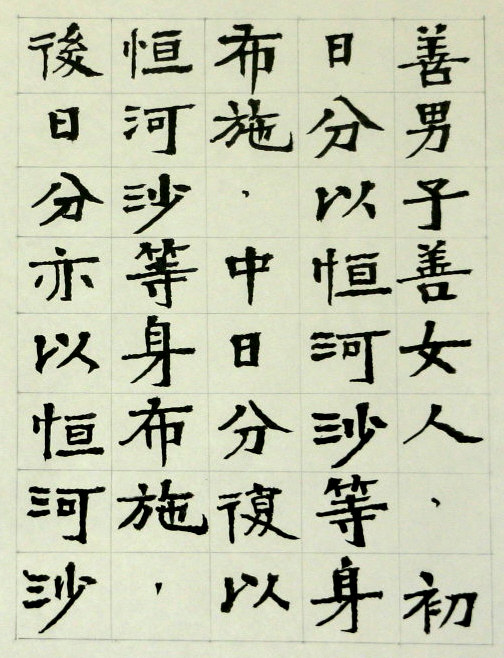 善男子善女人、初
日分以恒河沙等身
布施、中日分復以
恒河沙等身布施、
後日分亦以恒河沙